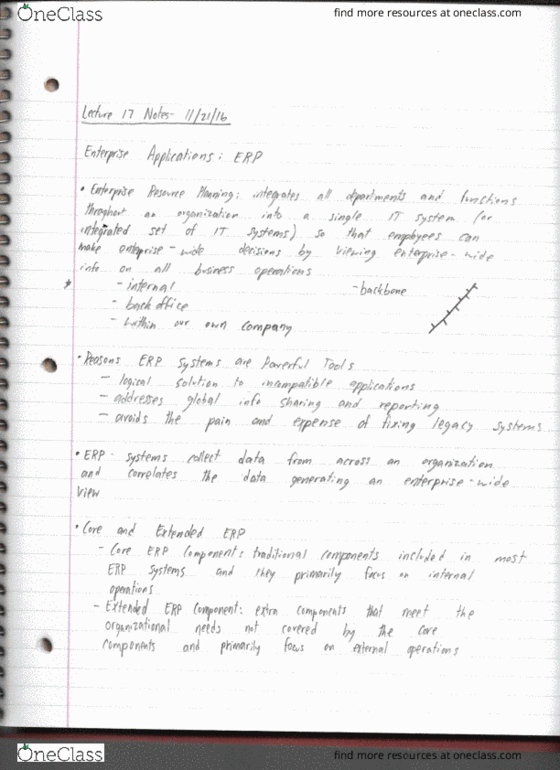 OneClass
find more resources at oneclass.com
Lecture 17 Notes- 11/21/16
Enterprise Applications: ERP
• Enterprise Resource Planning: integrates all departments and functions
throughout an organization into a single IT system (or
integrated set of IT systems) so that employees can
make enterprise-wide decisions by viewing enterprise-wide
info on all business operations
- internal
- backbone
- back office
- within our own company
• Reasons ERP Systems are Powerful Tools
- logical solution to incompatible applications
- addresses global info sharing and reporting
- avoids the pain and expense of fixing legacy systems
• ERP systems collect data from across an organization
and correlates the data generating an enterprise-wide
view
• Core and Extended ERP
- Core ERP Component: traditional components included in most
ERP systems and they primarily focus on internal
operations
- Extended ERP Component: extra components that meet the
organizational needs not covered by the core
components and primarily focus on external operations
OneClass
find more resources at oneclass.com